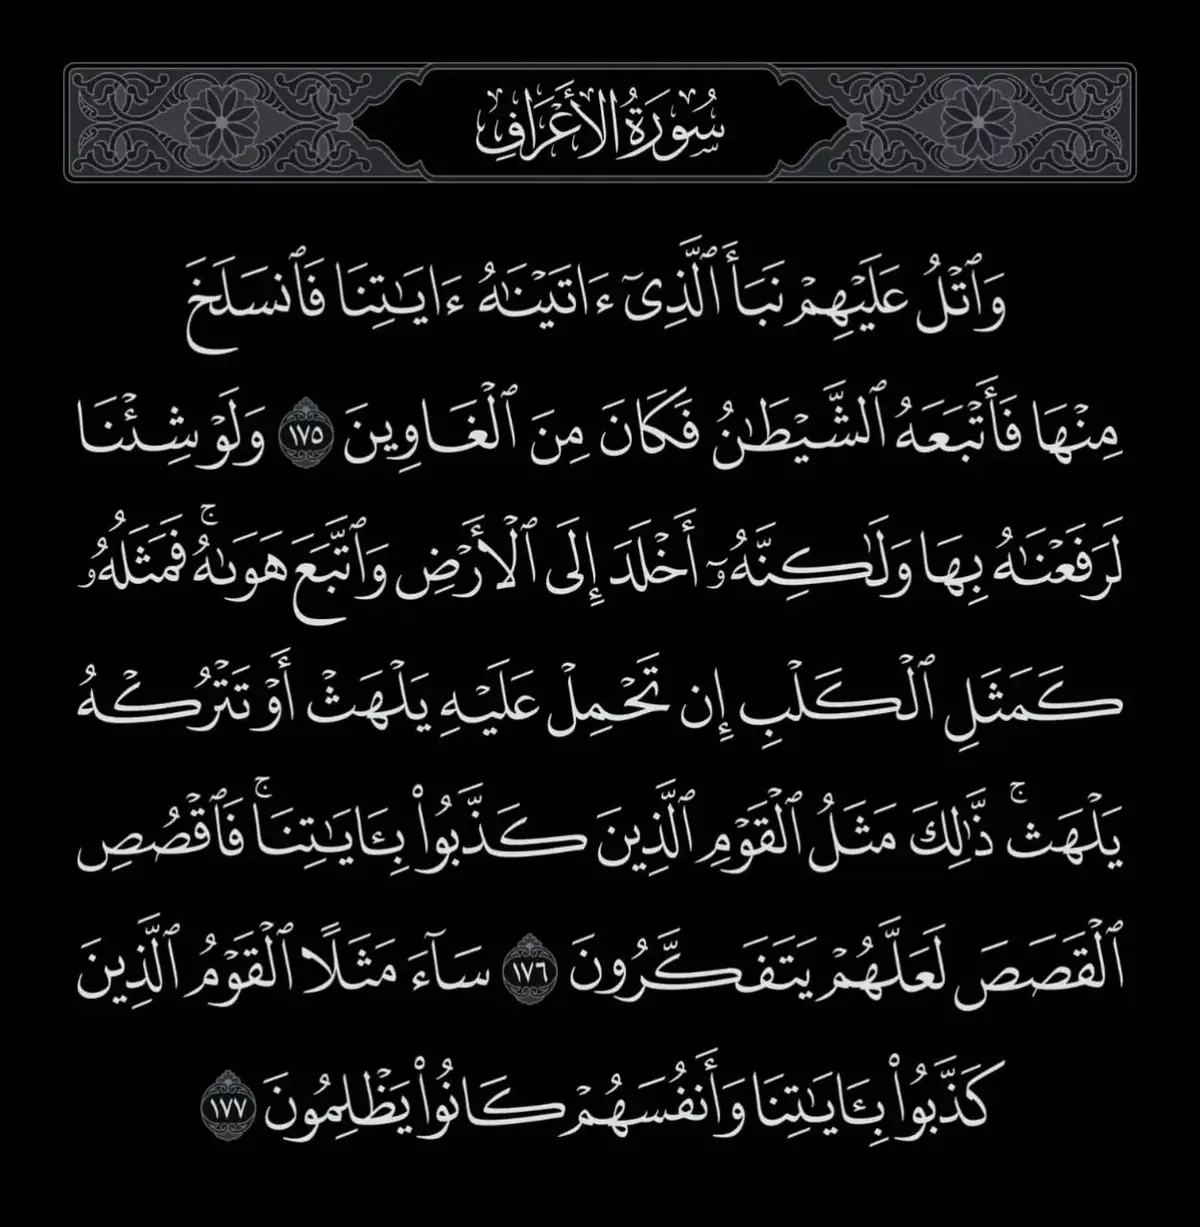 سُورَةُ الأَعۡرَافِ
وَٱتۡلُ عَلَيۡهِمۡ نَبَأَ ٱلَّذِيٓ ءَاتَيۡنَٰهُ ءَايَٰتِنَا فَٱنسَلَخَ
مِنۡهَا فَأَتۡبَعَهُ ٱلشَّيۡطَٰنُ فَكَانَ مِنَ ٱلۡغَاوِينَ ١٧٥ وَلَوۡ شِئۡنَا
لَرَفَعۡنَٰهُ بِهَا وَلَٰكِنَّهُۥٓ أَخۡلَدَ إِلَى ٱلۡأَرۡضِ وَٱتَّبَعَ هَوَىٰهُۚ فَمَثَلُهُۥ
كَمَثَلِ ٱلۡكَلۡبِ إِن تَحۡمِلۡ عَلَيۡهِ يَلۡهَثۡ أَوۡ تَتۡرُكۡهُ
يَلۡهَثۚ ذَّٰلِكَ مَثَلُ ٱلۡقَوۡمِ ٱلَّذِينَ كَذَّبُواْ بِـَٔايَٰتِنَاۚ فَٱقۡصُصِ
ٱلۡقَصَصَ لَعَلَّهُمۡ يَتَفَكَّرُونَ ١٧٦ سَآءَ مَثَلًا ٱلۡقَوۡمُ ٱلَّذِينَ
كَذَّبُواْ بِـَٔايَٰتِنَا وَأَنفُسَهُمۡ كَانُواْ يَظۡلِمُونَ ١٧٧